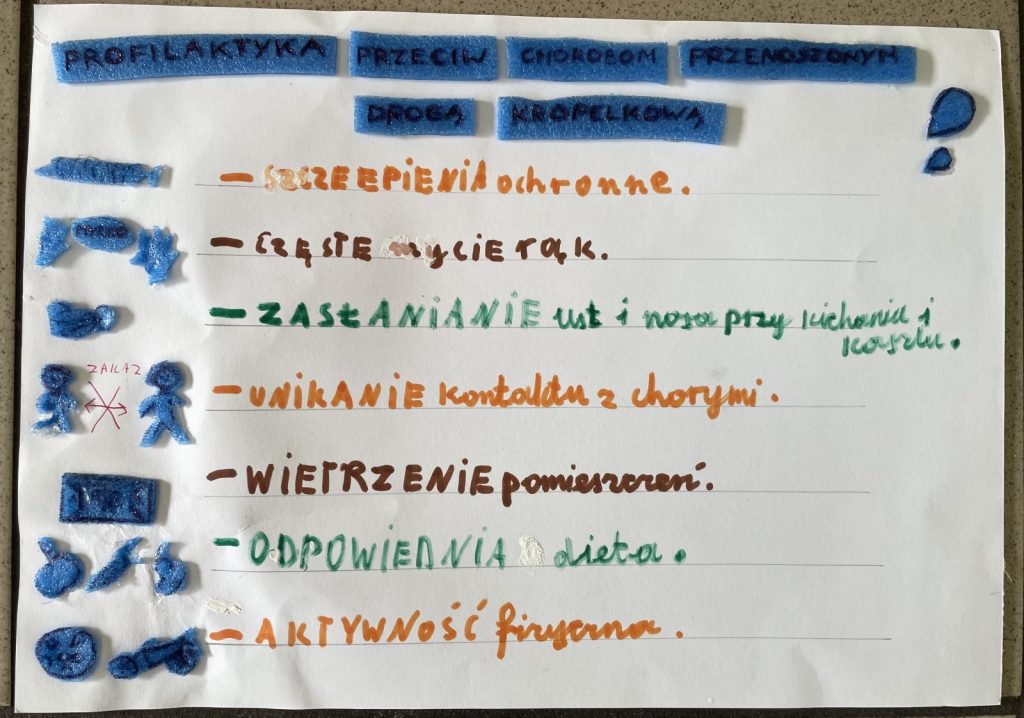 PROFILAKTYKA PRZECIW CHOROBOM PRZENOSZONYM
DROGĄ KROPELKOWĄ
- SZCZEEPIENIA ochronne.
MYDŁO
- CZĘSTE mycIE rąk.
- ZASŁANIANIE ust i nosa przy kichaniu i
kaszlu.
ZAKAZ
- UNIKANIE kontaktu z chorymi.
- WIETRZENIE pomieszczeń.
- ODPOWIEDNIA dieta.
- AKTYWNOŚĆ fizyczna.